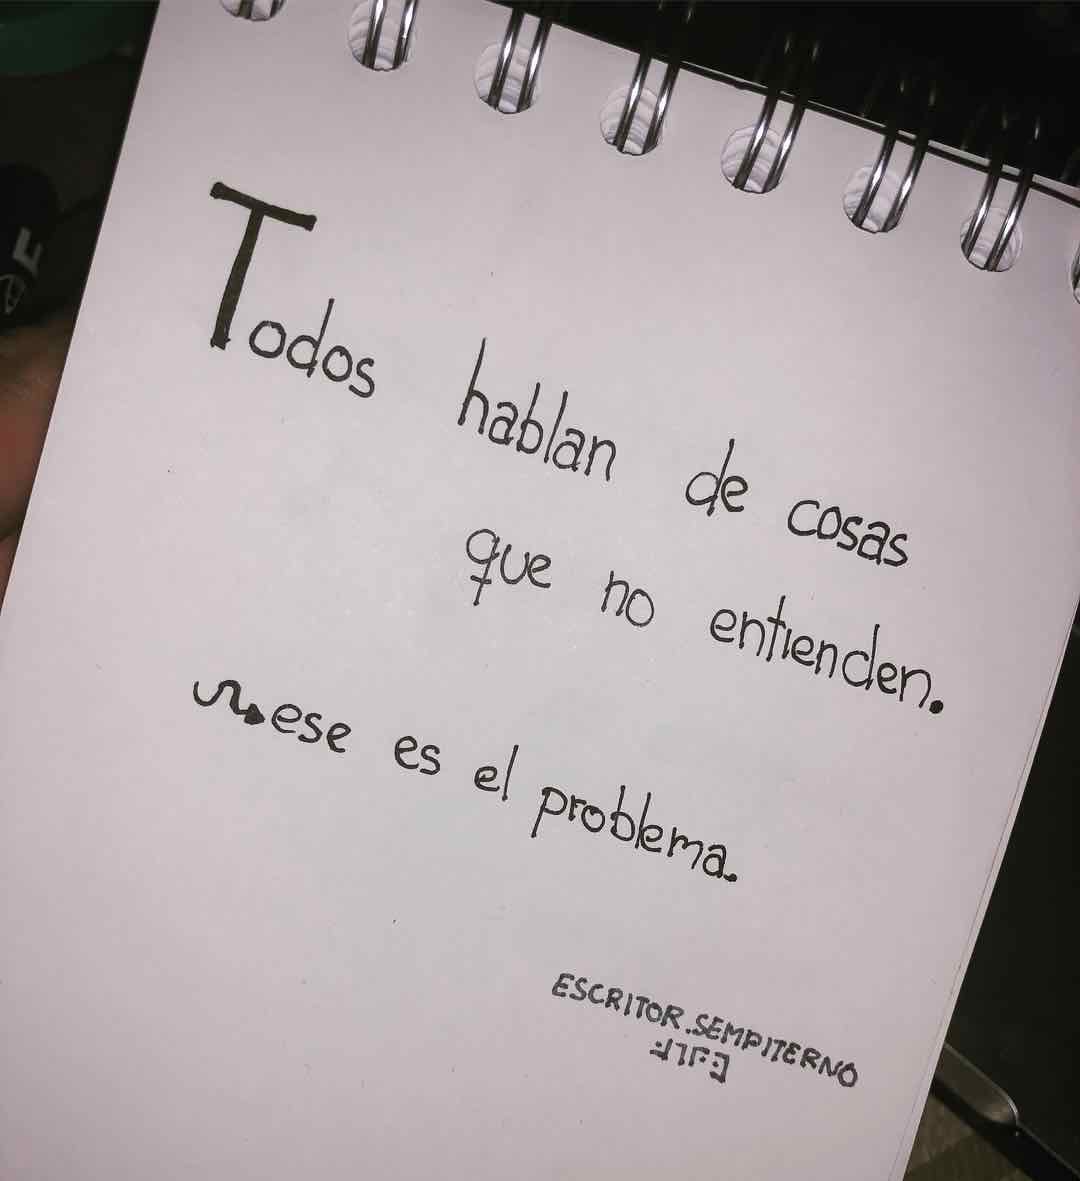 Todos hablan de cosas
que no entienden.
ese es el problema.
ESCRITOR.SEMPITERNO